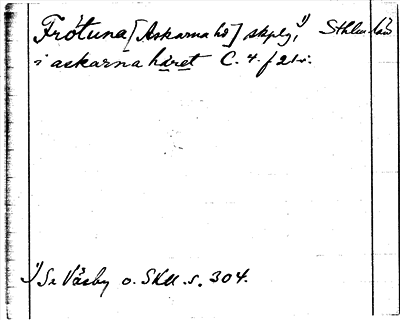 Frötuna [Askarna hd] skplg,¹⁾ Sthlms län
i askarna häret C. 4. f 21v.
¹⁾ Se Väsby o. SRU. s. 304.